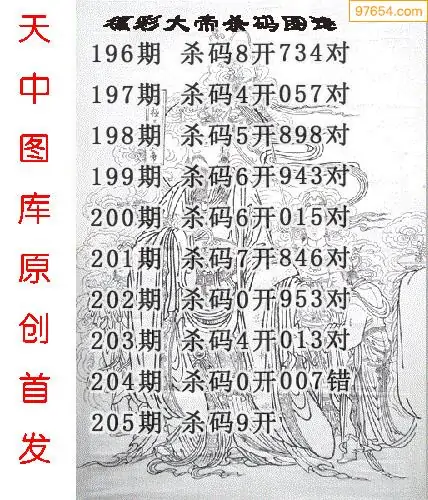 97654.com
福彩大帝杀码图迷
天中图库原创首发
196期 杀码8开734对
197期 杀码4开057对
198期 杀码5开898对
199期 杀码6开943对
200期 杀码6开015对
201期 杀码7开846对
202期 杀码0开953对
203期 杀码4开013对
204期 杀码0开007错
205期 杀码9开